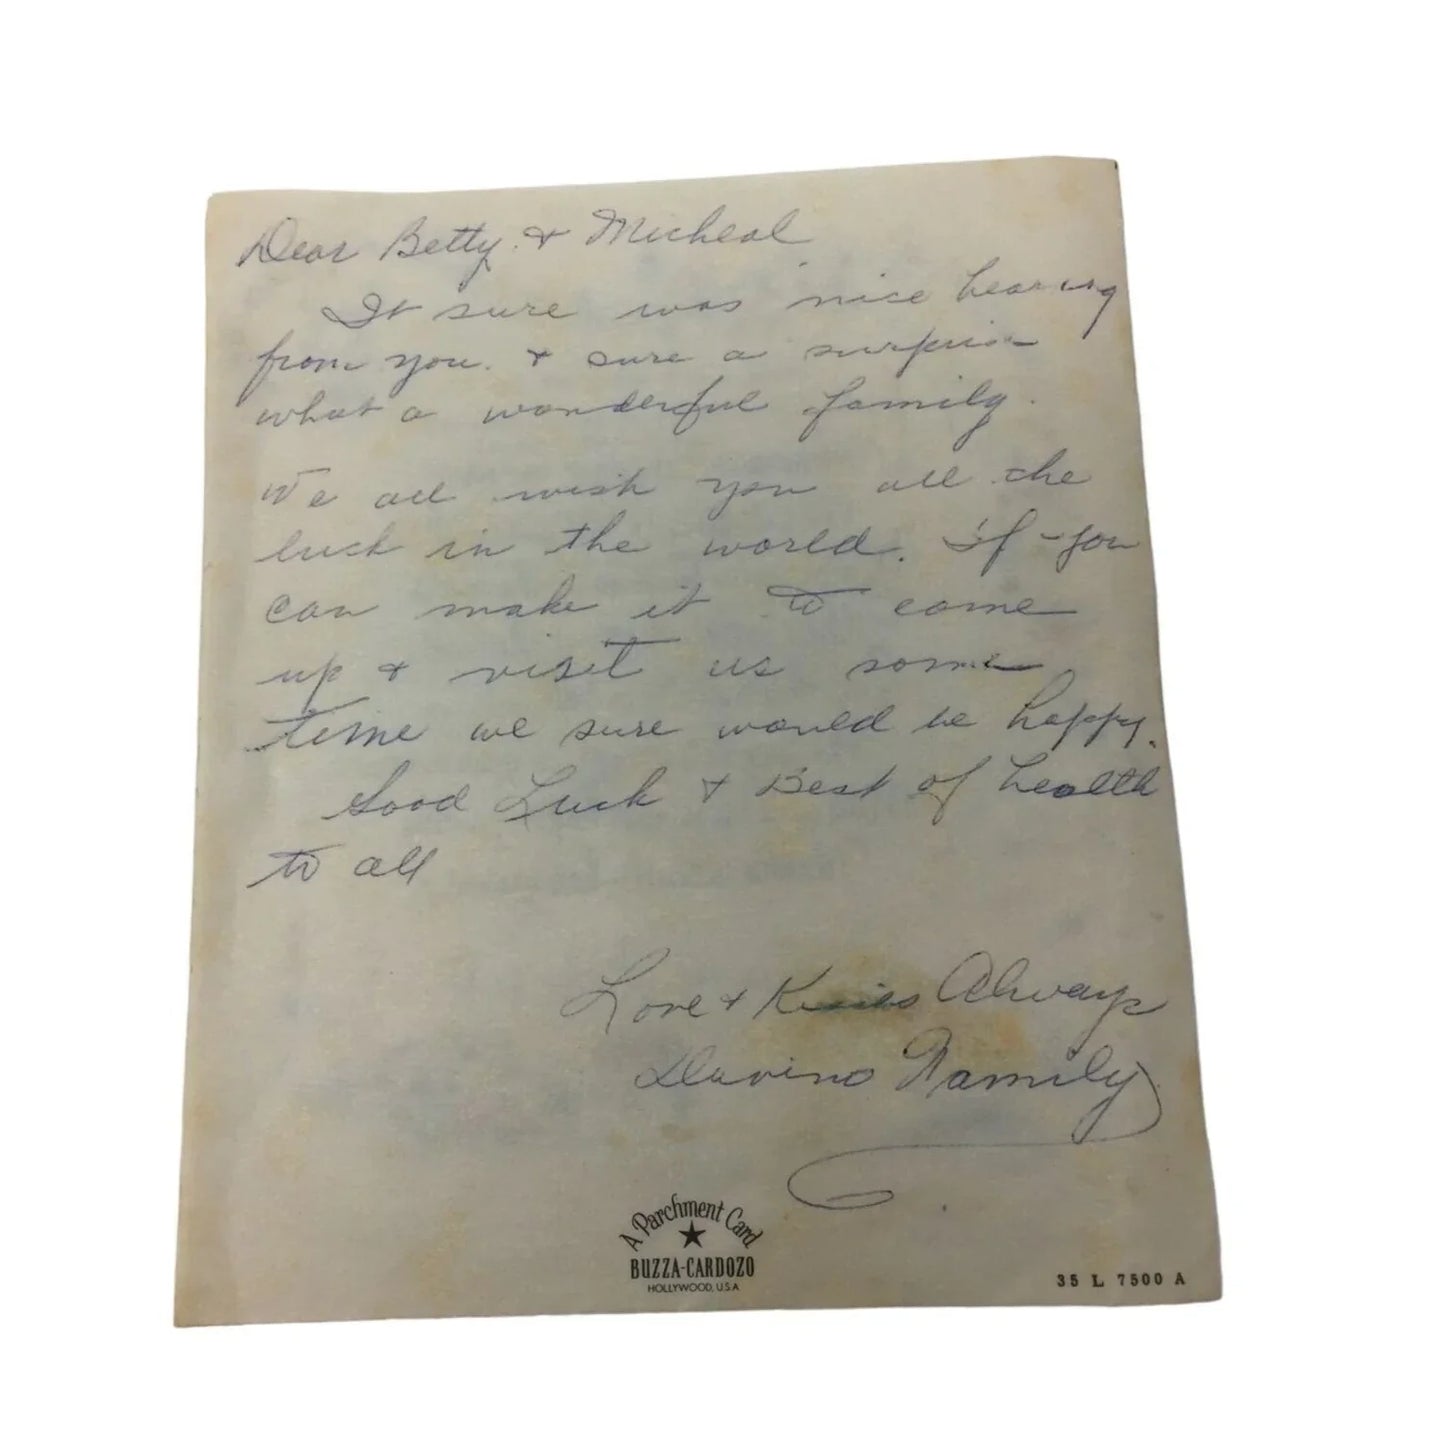 Dear Betty & Micheal
It sure was nice hearing
from you. & sure a surprise
what a wonderful family.
We all wish you all the
luck in the world. If you
can make it to come
up & visit us some
time we sure would be happy.
Good Luck & Best of health
to all
Love & Kisses Always
Davino Family
A Parchment Card
BUZZA-CARDOZO
HOLLYWOOD, U.S.A.
35 L 7500 A